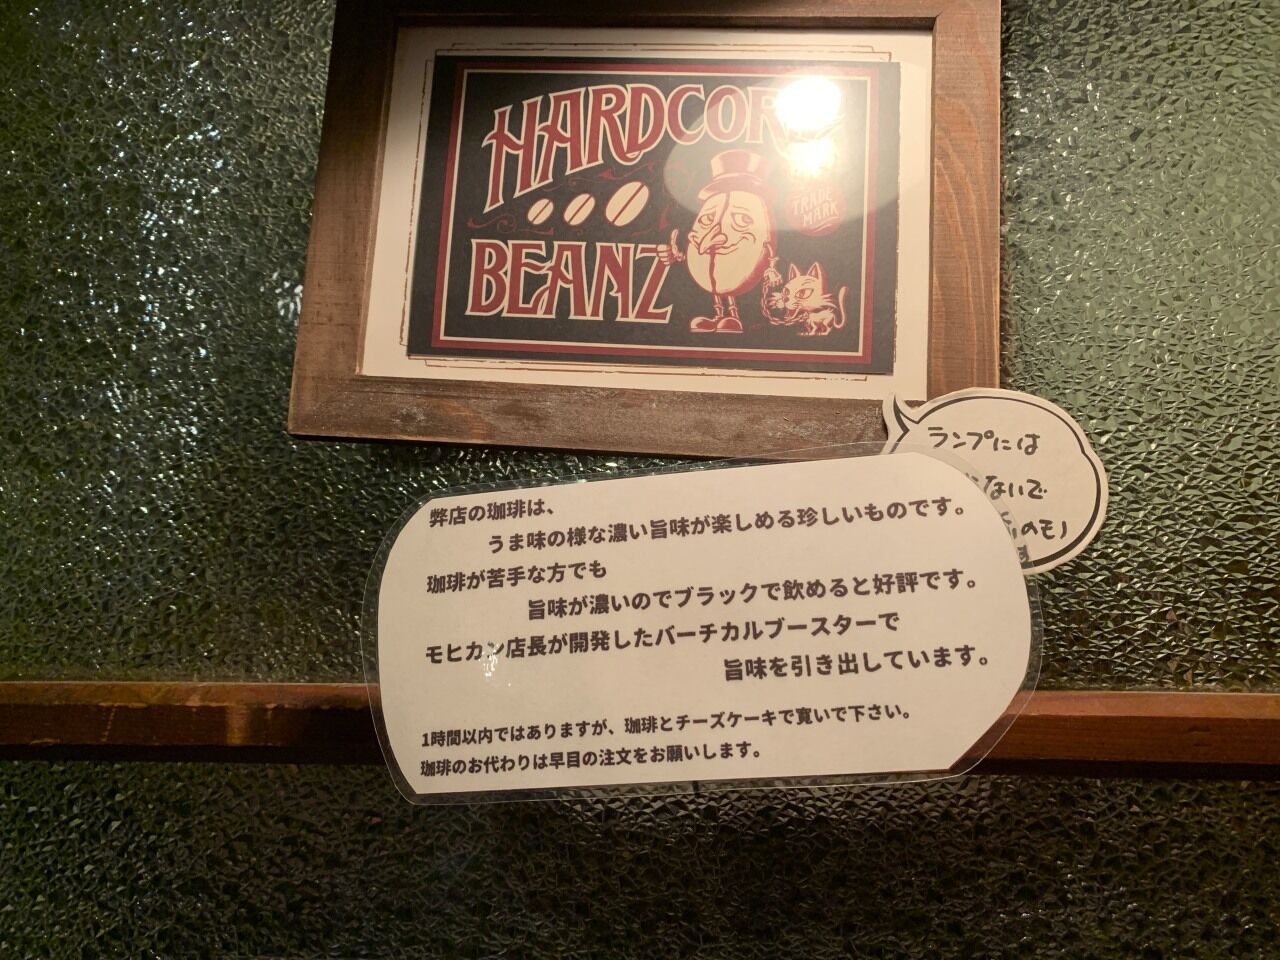 HARDCORE
BEANZ
TRADE
MARK
ランプには
ないで
のモノ
弊店の珈琲は、
うま味の様な濃い旨味が楽しめる珍しいものです。
珈琲が苦手な方でも
旨味が濃いのでブラックで飲めると好評です。
モヒカン店長が開発したバーチカルブースターで
旨味を引き出しています。
1時間以内ではありますが、珈琲とチーズケーキで寛いで下さい。
珈琲のお代わりは早目の注文をお願いします。